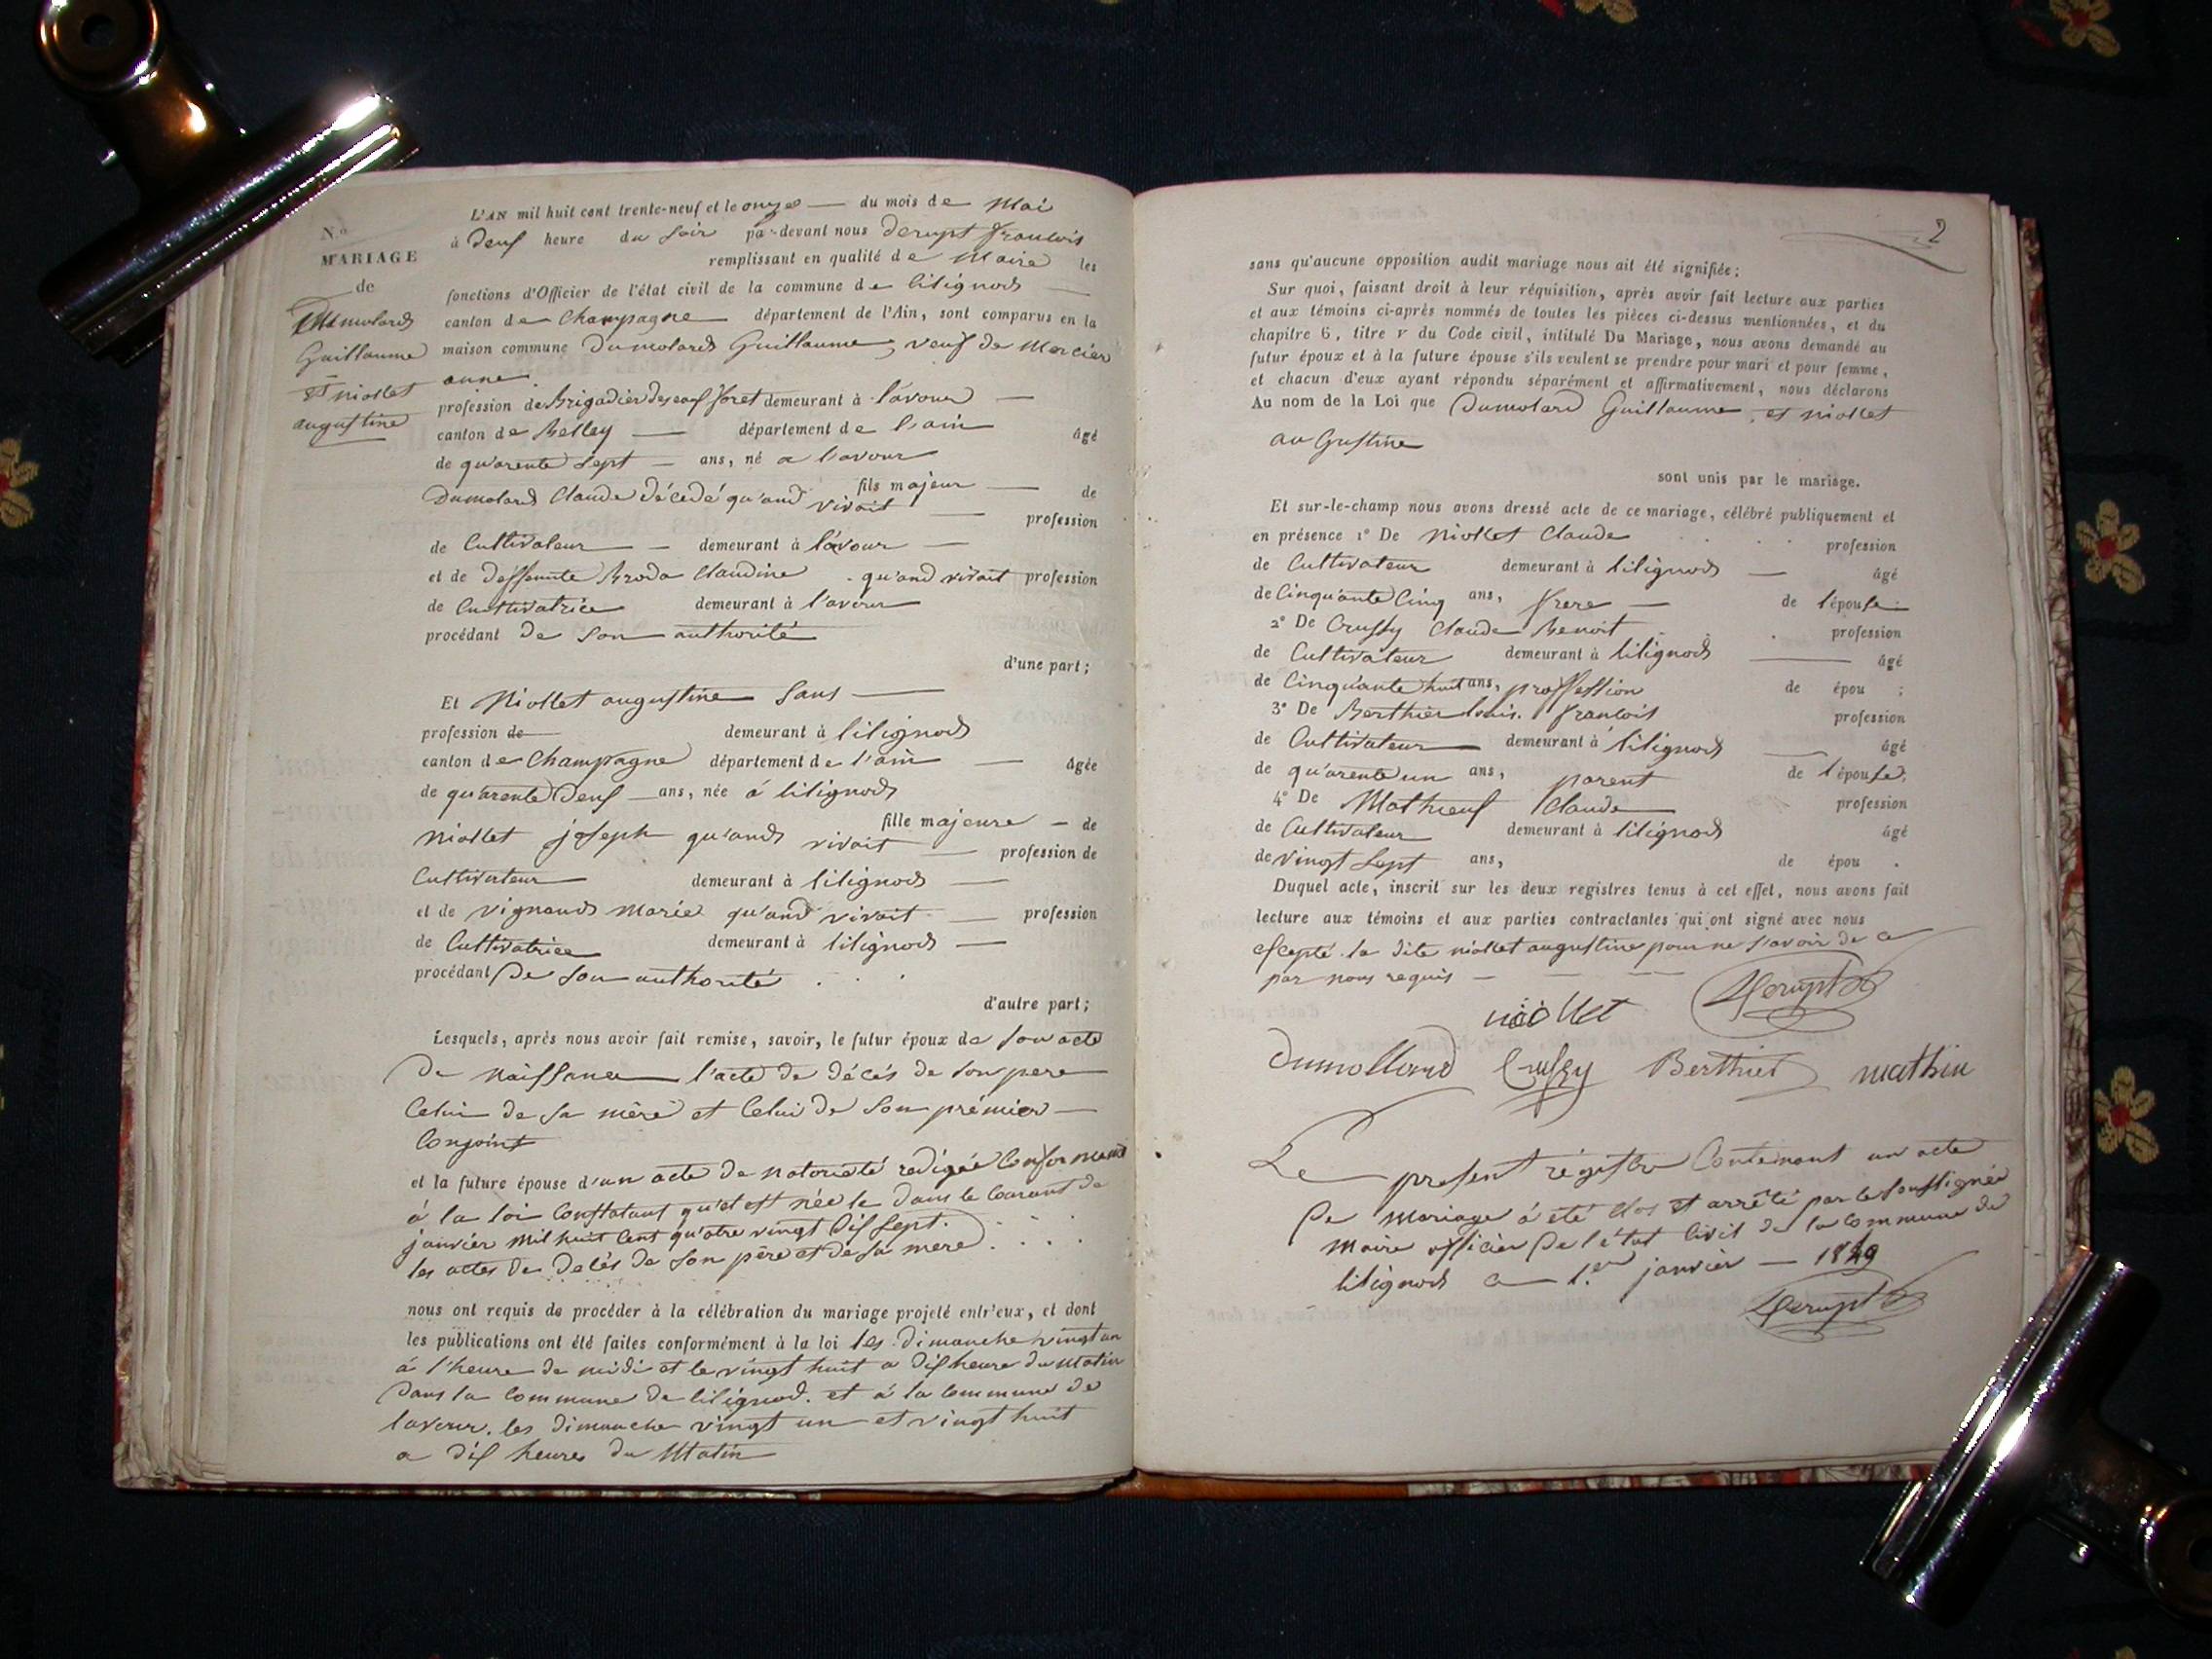 N.o
MARIAGE
de
Dumolard
Guillaume
et niollet
augustine
L'AN mil huit cent trente-neuf et le onze du mois de Mai
à deux heure du soir par-devant nous derupt françois
remplissant en qualité de Maire les
fonctions d'Officier de l'état civil de la commune de lilignod
canton de Champagne département de l'Ain, sont comparus en la
maison commune Dumolard Guillaume, veuf de Mercier
anne
profession de Brigadier des eaux foret demeurant à lavour
canton de Belley département de l'ain âgé
de quarente sept ans, né a lavour
fils majeur de
Dumolard Claude décédé qu'and vivait profession
de Cultivateur demeurant à lavour
et de deffunte Broda Claudine qu'and vivait profession
de Cultivatrice demeurant à l'avour
procédant de son authorité
d'une part;
Et Niollet augustine sans
profession de demeurant à lilignod
canton de Champagne département de l'ain âgée
de qu'arente deux ans, née á lilignod
fille majeure de
Niollet joseph qu'and vivait profession de
Cultivateur demeurant à lilignod
et de vignand Marie qu'and vivait profession
de Cultivatrice demeurant à lilignod
procédant de son authorité
d'autre part;
Lesquels, après nous avoir fait remise, savoir, le futur époux de son acte
de naissance l'acte de décés de son pere
Celui de sa mère et Celui de son prémier
Conjoint
et la future épouse d'un acte de notorieté redigée Conformement
á la loi Constatant qu'el est née le dans le Courant de
janvier mil huit Cent qu'atre vingt dix sept.
les actes de decés de son père et de sa mere
nous ont requis de procéder à la célébration du mariage projeté entr'eux, et dont
les publications ont été faites conformément à la loi les dimanche vingt un
á l'heure de midi et le vingt huit a dix heure du matin
dans la Commune de lilignod. et á la Commune de
lavour. les dimanche vingt un et vingt huit
a dix heures du Matin
2
sans qu'aucune opposition audit mariage nous ait été signifiée;
Sur quoi, faisant droit à leur réquisition, après avoir fait lecture aux parties
et aux témoins ci-après nommés de toutes les pièces ci-dessus mentionnées, et du
chapitre 6, titre V du Code civil, intitulé Du Mariage, nous avons demandé au
futur époux et à la future épouse s'ils veulent se prendre pour mari et pour femme,
et chacun d'eux ayant répondu séparément et affirmativement, nous déclarons
Au nom de la Loi que Dumolard Guillaume, et niollet
auGustine
sont unis par le mariage.
Et sur-le-champ nous avons dressé acte de ce mariage, célébré publiquement et
en présence 1° De Niollet Claude profession
de Cultivateur demeurant à lilignod âgé
de Cinqu'ante Cinq ans, frere de l'épouse
2° De Crussy Claude Benoit profession
de Cultivateur demeurant à lilignod âgé
de Cinqu'ante huit ans, proffession de épou ;
3° De Berthier louis françois profession
de Cultivateur demeurant à lilignod âgé
de qu'arente un ans, parent de l'épouse;
4° De Mathieux Claude profession
de Cultivateur demeurant à lilignod âgé
de vingt sept ans, de épou .
Duquel acte, inscrit sur les deux registres tenus à cet effet, nous avons fait
lecture aux témoins et aux parties contractantes qui ont signé avec nous
excepté la dite niollet augustine pour ne savoir de ce
par nous requis
niollet Derupt
dumollard Crussy Berthier mathieu
Le present régistre Contenant un acte
de Mariage á été Clos et arrêté par le soussigné
Maire officier de l'état Civil de la Commune de
lilignod Ce 1.er janvier 1849
Derupt